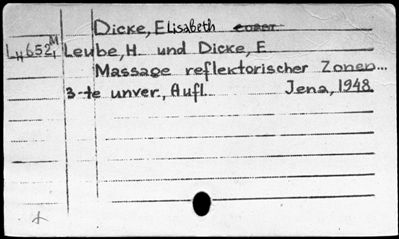 Dicke, Elisabeth
LH652 M1 Leube, H. und Dicke, E
Massage reflektorischer Zonen...
3-te unver., Aufl. Jena, 1948